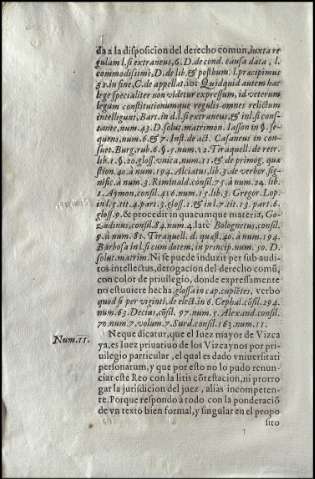 da a la disposicion del derecho comun, iuxta re
gulam l. si extraneus, 6. D. de cond. causa data, l.
commodissimè, D. de lib. & posthum. l. præcipimus
in fine, C. de appellat. ibi: Quidquid autem hac
lege specialiter non videtur expressum, id veterum
legum constitutionumque regulis omnes relictum
intelligant, Bart. in d. l. si extraneus, & in l. si cons
tante, num. 43. D. solut. matrim. Iason in §.
num. 6. & 7. Inst. de act. Casaneus in con
suet. Burg. rub. num. 12. Tiraquell. de retr.
lib. 1. §. 20. gloss. vnica, num. 11. & de primog. quæ
stion. 40. à num. 194. Alciatus lib. 3. de verbor. sig-
nific. à num. 8. Riminald. consil. 75. à num. 24. lib.
1. Aymon. consil. 416. num. 15. lib. 3. Gregor. Lop.
in l. 5. tit. 4. part. 3. gloss. 1. & in l. 7. tit. 13. part. 6.
gloss. 9. & procedit in quacumque materia, Go
zadinus, consil. 84. num. 4. latè Bolognetus, consil.
9. à num. 81. Tiraquell. d. quæst. 40. à num. 194.
Barbosa in l. si cum dotem, in princip. num. 50. D.
solut. matrim. Ni se puede induzir per sub audi
tos intellectus, derogacion del derecho comũ,
con color de priuilegio, donde expressamente
no estuuiere hecha, glossa in cap. cupiẽtes, verbo
quod si per viginti, de elect. in 6. Cephal. cõsil. 294.
num. 63. Decius, cõsil. 97. num. 5. Alexand. consil.
70. num. 7. volum. 7. Surd. consil. 163. num. 11.
Num. 11.
Neque dicatur, que el Iuez mayor de Vizca
ya, es Iuez priuatiuo de los Vizcaynos por pri
uilegio particular, el qual es dado vniuersitati
personarum, y que por esto no lo pudo renun
ciar este Reo con la litis cõtestacion, ni prorro
gar la jurisdicion del juez, aliàs incompeten-
te. Porque respondo à todo con la ponderaciõ
de vn texto bien formal, y singular en el propo
sito